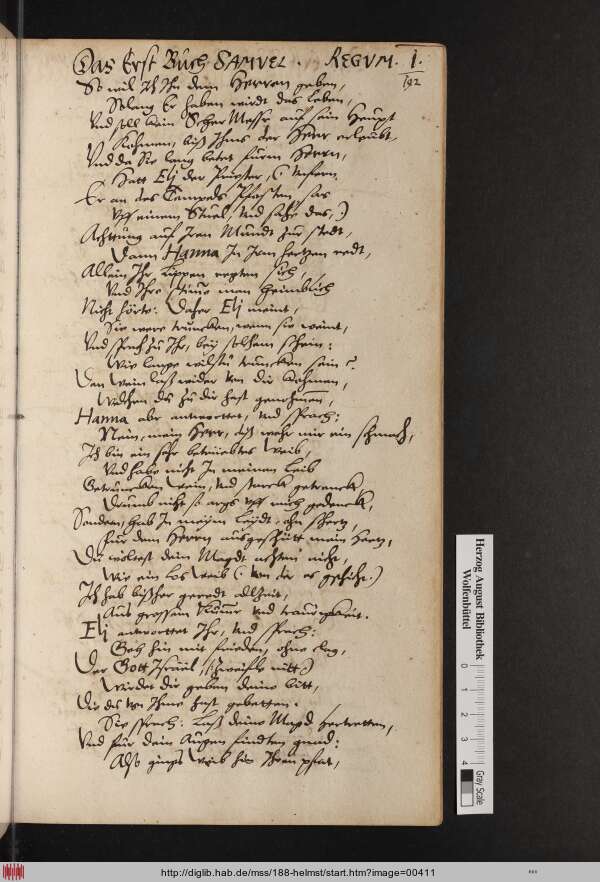 Das Erst Buch SAMUEL. REGUM. 1.
192
So wil Ich Ihn dem Herren geben,
Solang Er haben wirdt das leben,
Und soll kain Scher Messer auf sein Haupt
Kohmen, biß Ihms der Herr erlaubt,
Und da Sie lang betet fürm Herrn,
Hatt Elj der Priester, (:
Er an des Tempels Pfosten sas
Uff einem Stuel, Und sahe das,:)
Achttung auf Iren Mundt zur stedt,
Dann Hanna In Irm hertzen redt,
Allein Ihr Lippen regten sich,
Und Ihre stime man heimblich
Nicht hörte: Daher Elj meint,
Sie were truncken, wann sie weint,
Und sprach zu Ihr, bey solchem schein:
Wie lange wilstu truncken sein?
Den Wein laß wider von dir kohmen,
Welchen du zu dir hast genohmen,
Hanna abr antworttet, Und sprach:
Nein, mein Herr, diß wehr mir ein schmach,
Ich bin ein sehr betrüebtes Weib,
Und habe nicht In meinen Leib
Getruncken Wein, Und starck getranck,
Drumb nicht so args uff mich gedenck,
Sondern, hab In meym Leydt, ohn schertz,
Für dem Herrn ausgeschütt mein Hertz,
Du wöltest dein Magdt achten nicht,
Wie ein Los Weib (: von der es geschicht.)
Ich hab bißher geredt allzeit,
Aus grossem Kömer Und traurigkeit.
Elj antworttet Ihr, Und sprach:
Geh hin mit frieden, ohne clag,
Der Gott Israel, (: zweifle nitt:)
Wirdet dir geben deine bitt,
Die du von Ihme hast gebetten.
Sie sprach: Laß deine Magd hertretten,
Und für dein Augen finden gnad:
Also gings Weib hin Ihren pfat,
Herzog August Bibliothek
Wolfenbüttel
0 1 2 3 4
Gray Scale
http://diglib.hab.de/mss/188-helmst/start.htm?image=00411